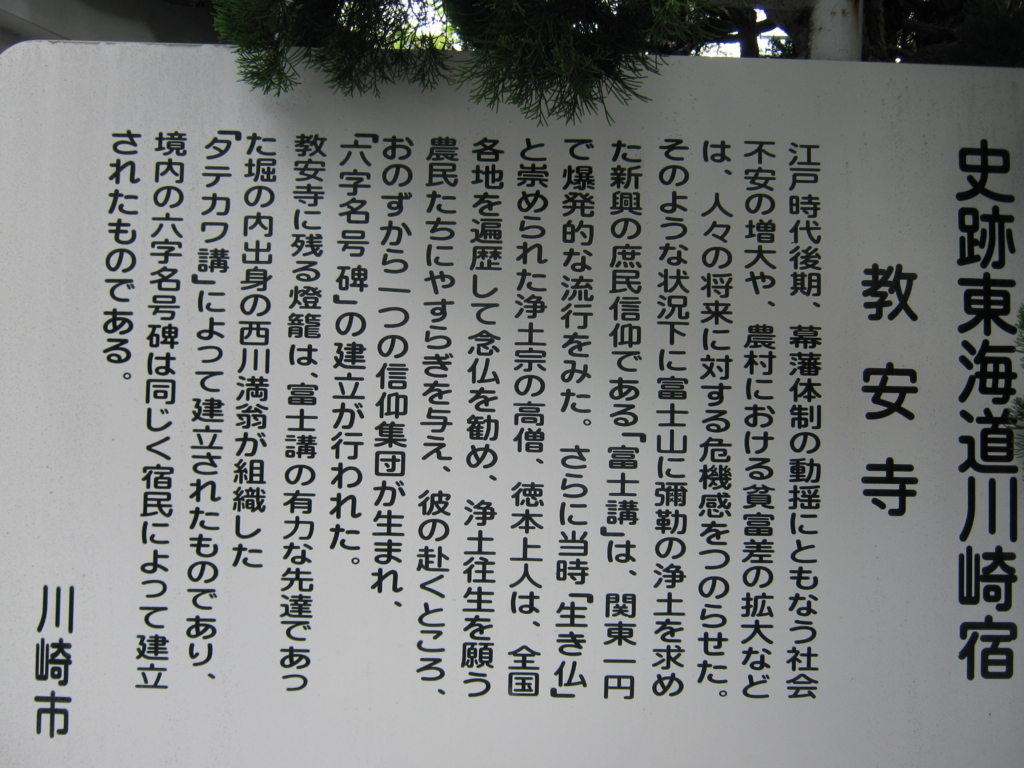 史跡東海道川崎宿
教安寺
江戸時代後期、幕藩体制の動揺にともなう社会
不安の増大や、農村における貧富差の拡大など
は、人々の将来に対する危機感をつのらせた。
そのような状況下に富士山に彌勒の浄土を求め
た新興の庶民信仰である「富士講」は、関東一円
で爆発的な流行をみた。さらに当時「生き仏」
と崇められた浄土宗の高僧、徳本上人は、全国
各地を遍歴して念仏を勧め、浄土往生を願う
農民たちにやすらぎを与え、彼の赴くところ、
おのずから一つの信仰集団が生まれ、
「六字名号碑」の建立が行われた。
教安寺に残る燈籠は、富士講の有力な先達であっ
た堀の内出身の西川満翁が組織した
「タテカワ講」によって建立されたものであり、
境内の六字名号碑は同じく宿民によって建立
されたものである。
川崎市